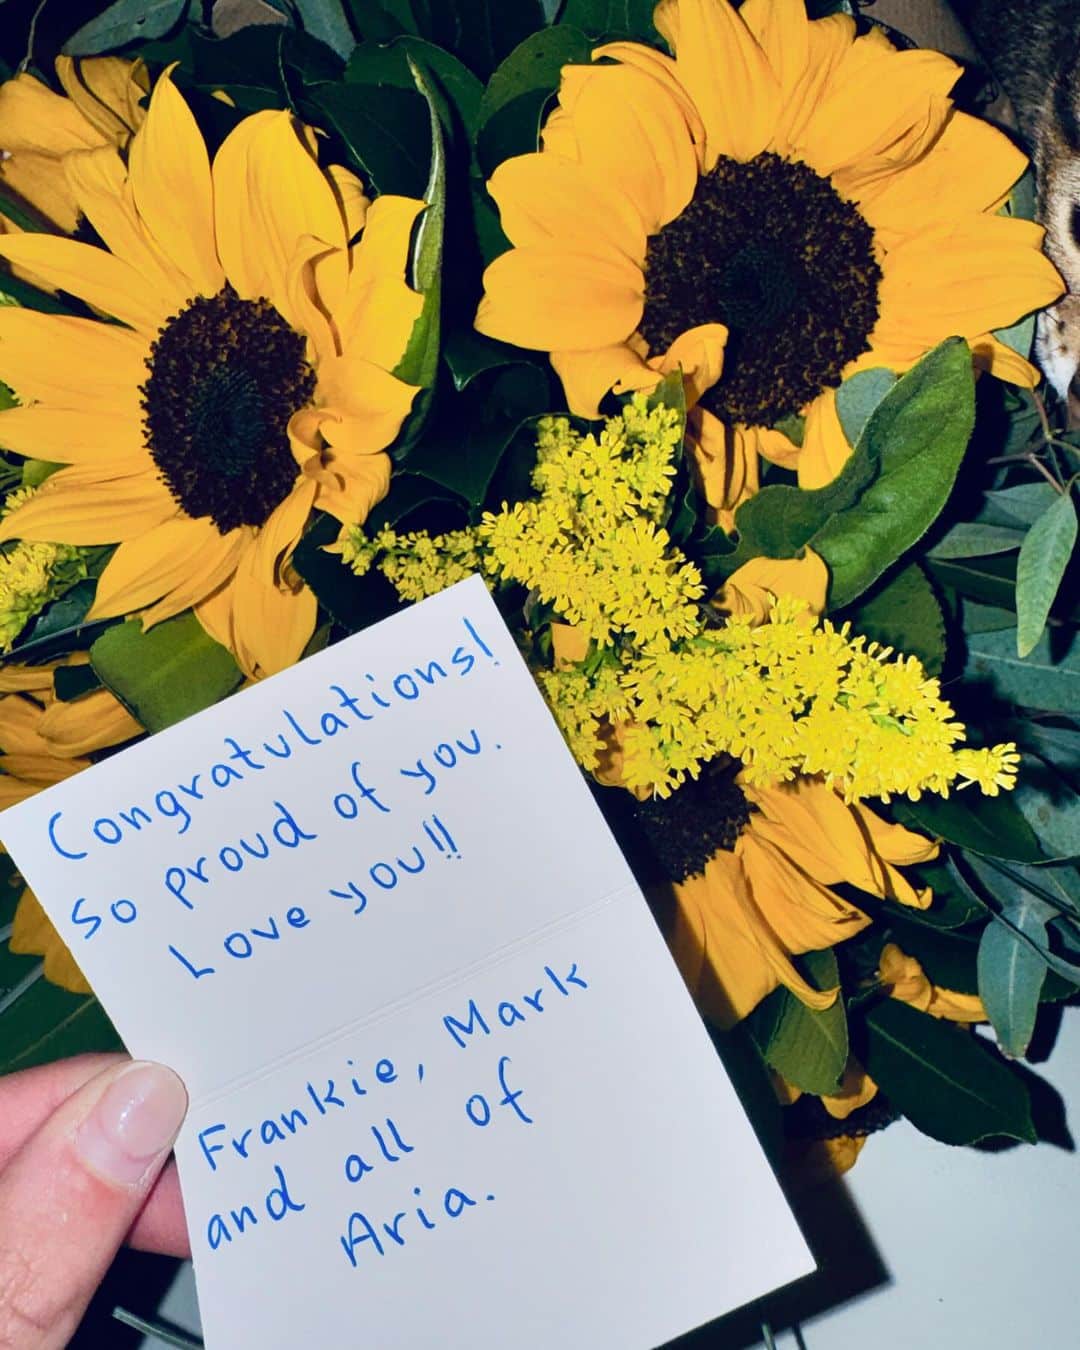 Congratulations!
So proud of you.
Love you!!
Frankie, Mark
and all of
Aria.